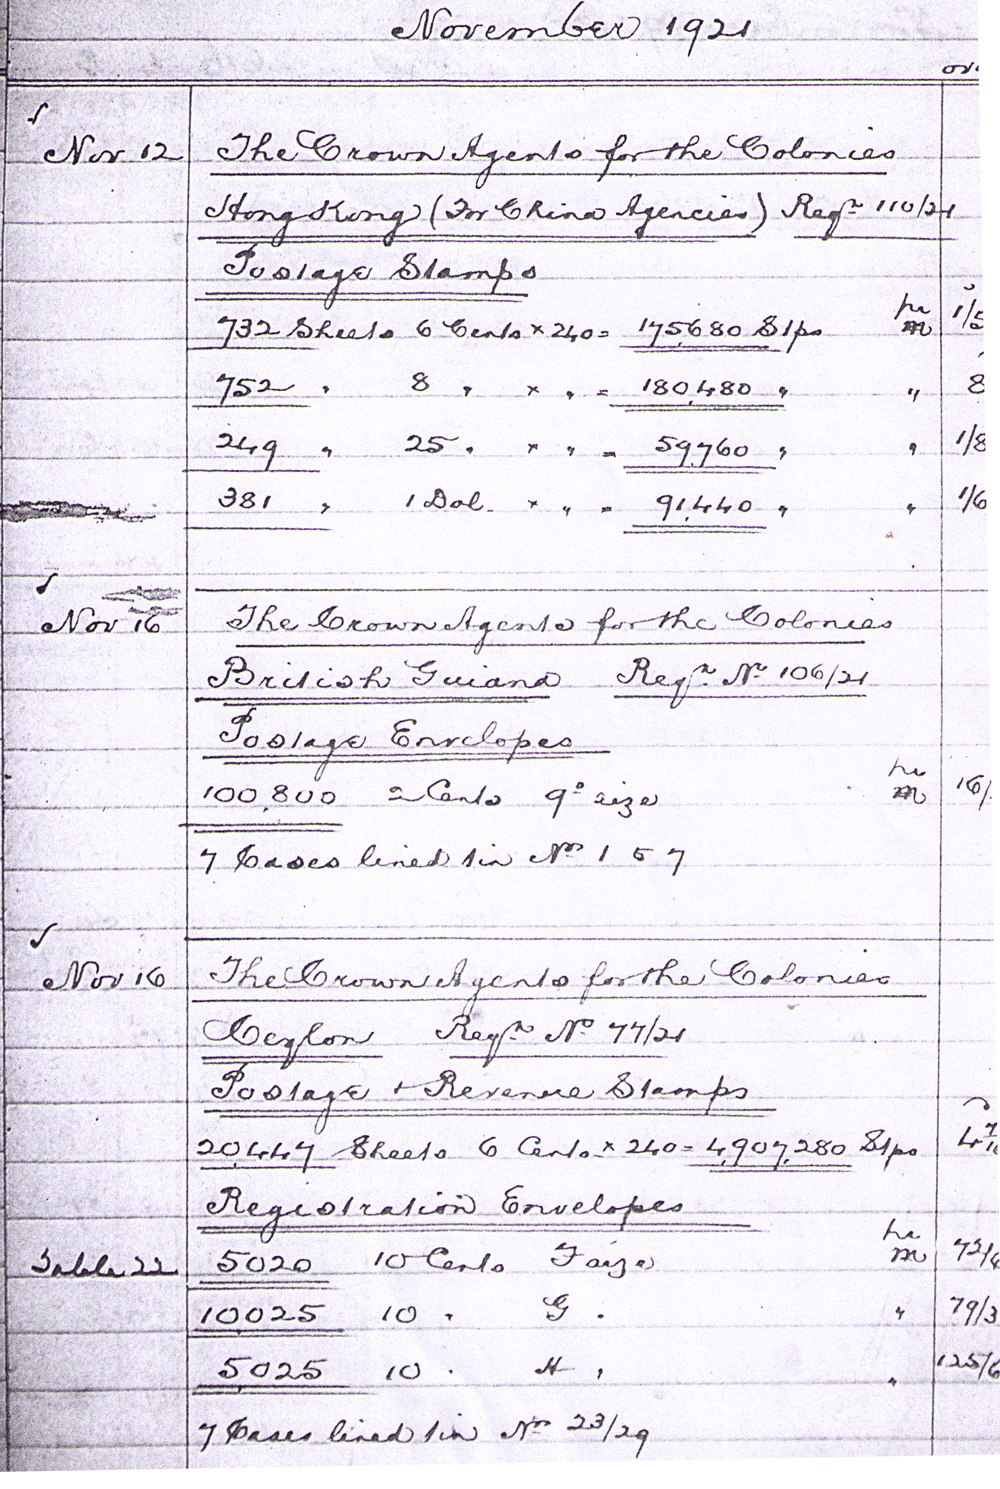 November 1921
Nov 12 The Crown Agents for the Colonies
Hong Kong (For China Agencies) Reqn 110/21
Postage Stamps
732 Sheets 6 Cents × 240 = 175,680 Stps per m 1/5
752 " 8 " × " = 180,480 " " 8
249 " 25 " × " = 59,760 " " 1/8
381 " 1 Dol. × " = 91,440 " " 1/6
Nov 16 The Crown Agents for the Colonies
British Guiana Reqn No 106/21
Postage Envelopes
100,800 2 Cents 9o size per m 16/
7 Cases lined tin Nos 1 5 7
Nov 16 The Crown Agents for the Colonies
Ceylon Reqn No 77/21
Postage + Revenue Stamps
20,447 Sheets 6 Cents × 240 = 4,907,280 Stps
Registration Envelopes
Table 22 5020 10 Cents F size per m 72/6
10025 10 " G " " 79/3
5025 10 " H " " 125/6
7 Cases lined tin Nos 23/29